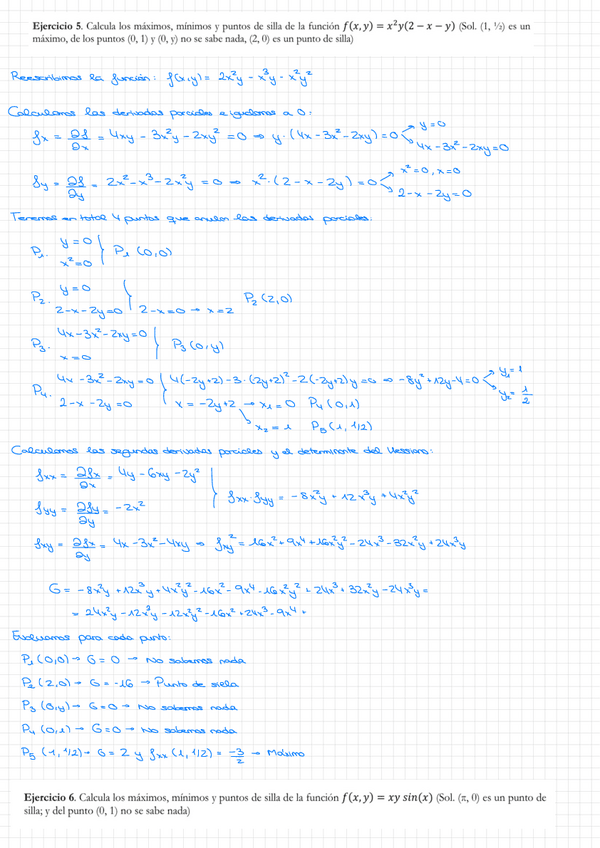 Ejercicio 5. Calcula los máximos, mínimos y puntos de silla de la función f(x, y) = x²y(2 − x − y) (Sol. (1, ½) es un
máximo, de los puntos (0, 1) y (0, y) no se sabe nada, (2, 0) es un punto de silla)
Reescribimos la función: f(x,y) = 2x²y - x³y - x²y²
Calculamos las derivadas parciales e igualamos a 0:
fx = ∂f/∂x = 4xy - 3x²y - 2xy² = 0 ⇒ y·(4x - 3x² - 2xy) = 0 → y = 0
4x - 3x² - 2xy = 0
fy = ∂f/∂y = 2x² - x³ - 2x²y = 0 ⇒ x²·(2 - x - 2y) = 0 → x² = 0, x = 0
2 - x - 2y = 0
Tenemos en total 4 puntos que anulan las derivadas parciales:
P1. y = 0
x² = 0 } P1 (0,0)
P2. y = 0
2 - x - 2y = 0 } 2 - x = 0 → x = 2 P2 (2,0)
P3. 4x - 3x² - 2xy = 0
x = 0 } P3 (0,y)
P4. 4x - 3x² - 2xy = 0 } 4(-2y+2) - 3·(2y+2)² - 2(-2y+2)y = 0 ⇒ -8y² + 12y - 4 = 0 → y1 = 1
y2 = 1/2
2 - x - 2y = 0 x = -2y + 2 → x1 = 0 P4 (0,1)
x2 = 1 P5 (1, 1/2)
Calculamos las segundas derivadas parciales y el determinante del Hessiano:
fxx = ∂fx/∂x = 4y - 6xy - 2y²
fyy = ∂fy/∂y = -2x² } fxx·fyy = -8x²y + 12x³y + 4x²y²
fxy = ∂fx/∂y = 4x - 3x² - 4xy ⇒ fxy² = 16x² + 9x⁴ + 16x²y² - 24x³ - 32x²y + 24x³y
G = -8x²y + 12x³y + 4x²y² - 16x² - 9x⁴ - 16x²y² + 24x³ + 32x²y - 24x³y =
= 24x²y - 12x³y - 12x²y² - 16x² + 24x³ - 9x⁴
Evaluamos para cada punto:
P1 (0,0) → G = 0 → No sabemos nada
P2 (2,0) → G = -16 → Punto de silla
P3 (0,y) → G = 0 → No sabemos nada
P4 (0,1) → G = 0 → No sabemos nada
P5 (1, 1/2) → G = 2 y fxx (1, 1/2) = -3/2 → Máximo
Ejercicio 6. Calcula los máximos, mínimos y puntos de silla de la función f(x, y) = xy sin(x) (Sol. (π, 0) es un punto de
silla; y del punto (0, 1) no se sabe nada)